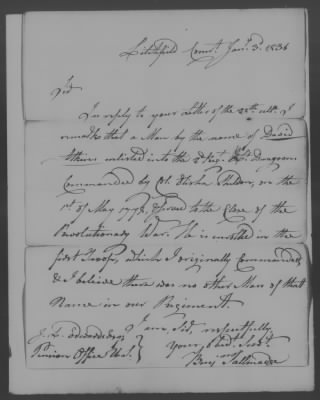 Litchfield Connt. Jany. 3d. 1836
Sir
In reply to your Letter of the 28th ulto. I
remark that a Man by the name of David
Atkins enlisted into the 2d Regt. Lt. Dragoons
Commanded by Col. Elisha Sheldon, on the
1st of May 1778, & served to the Close of the
Revolutionary War. He is enrolled in the
first Troop, which I originally Commanded,
& I believe there was no other Man of that
Name in our Regiment.
I am Sir, respectfully,
J. L. Edwards Esqr. Your Obt. Servt.
Pension Office Wa. Benjn. Tallmadge